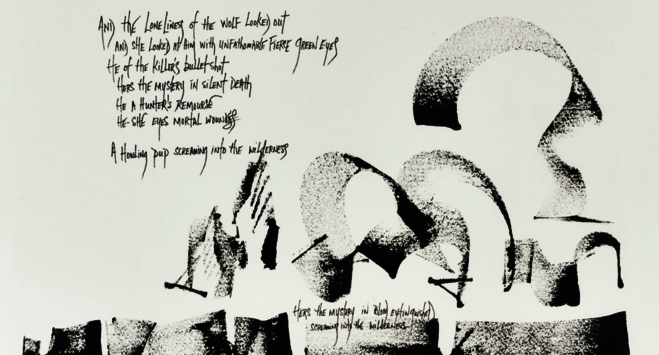 AND the LONELINESS of the WOLF LOOKED out
AND SHE LOOKED AT HIM WITH UNFATHOMABLE FIERCE GREEN EYES
HE OF the KILLER'S bullet shot
HERS the MYSTERY iN SILENT DEATH
HE A HUNTER'S REMOURSE
HE-SHE EYES MORTAL WOUNDS
A Howling pup SCREAMING iNto the WILDERNESS
HERS the MYSTERY iN Blood EXTINGUISHED
SCREAMING iNto the WILDERNESS